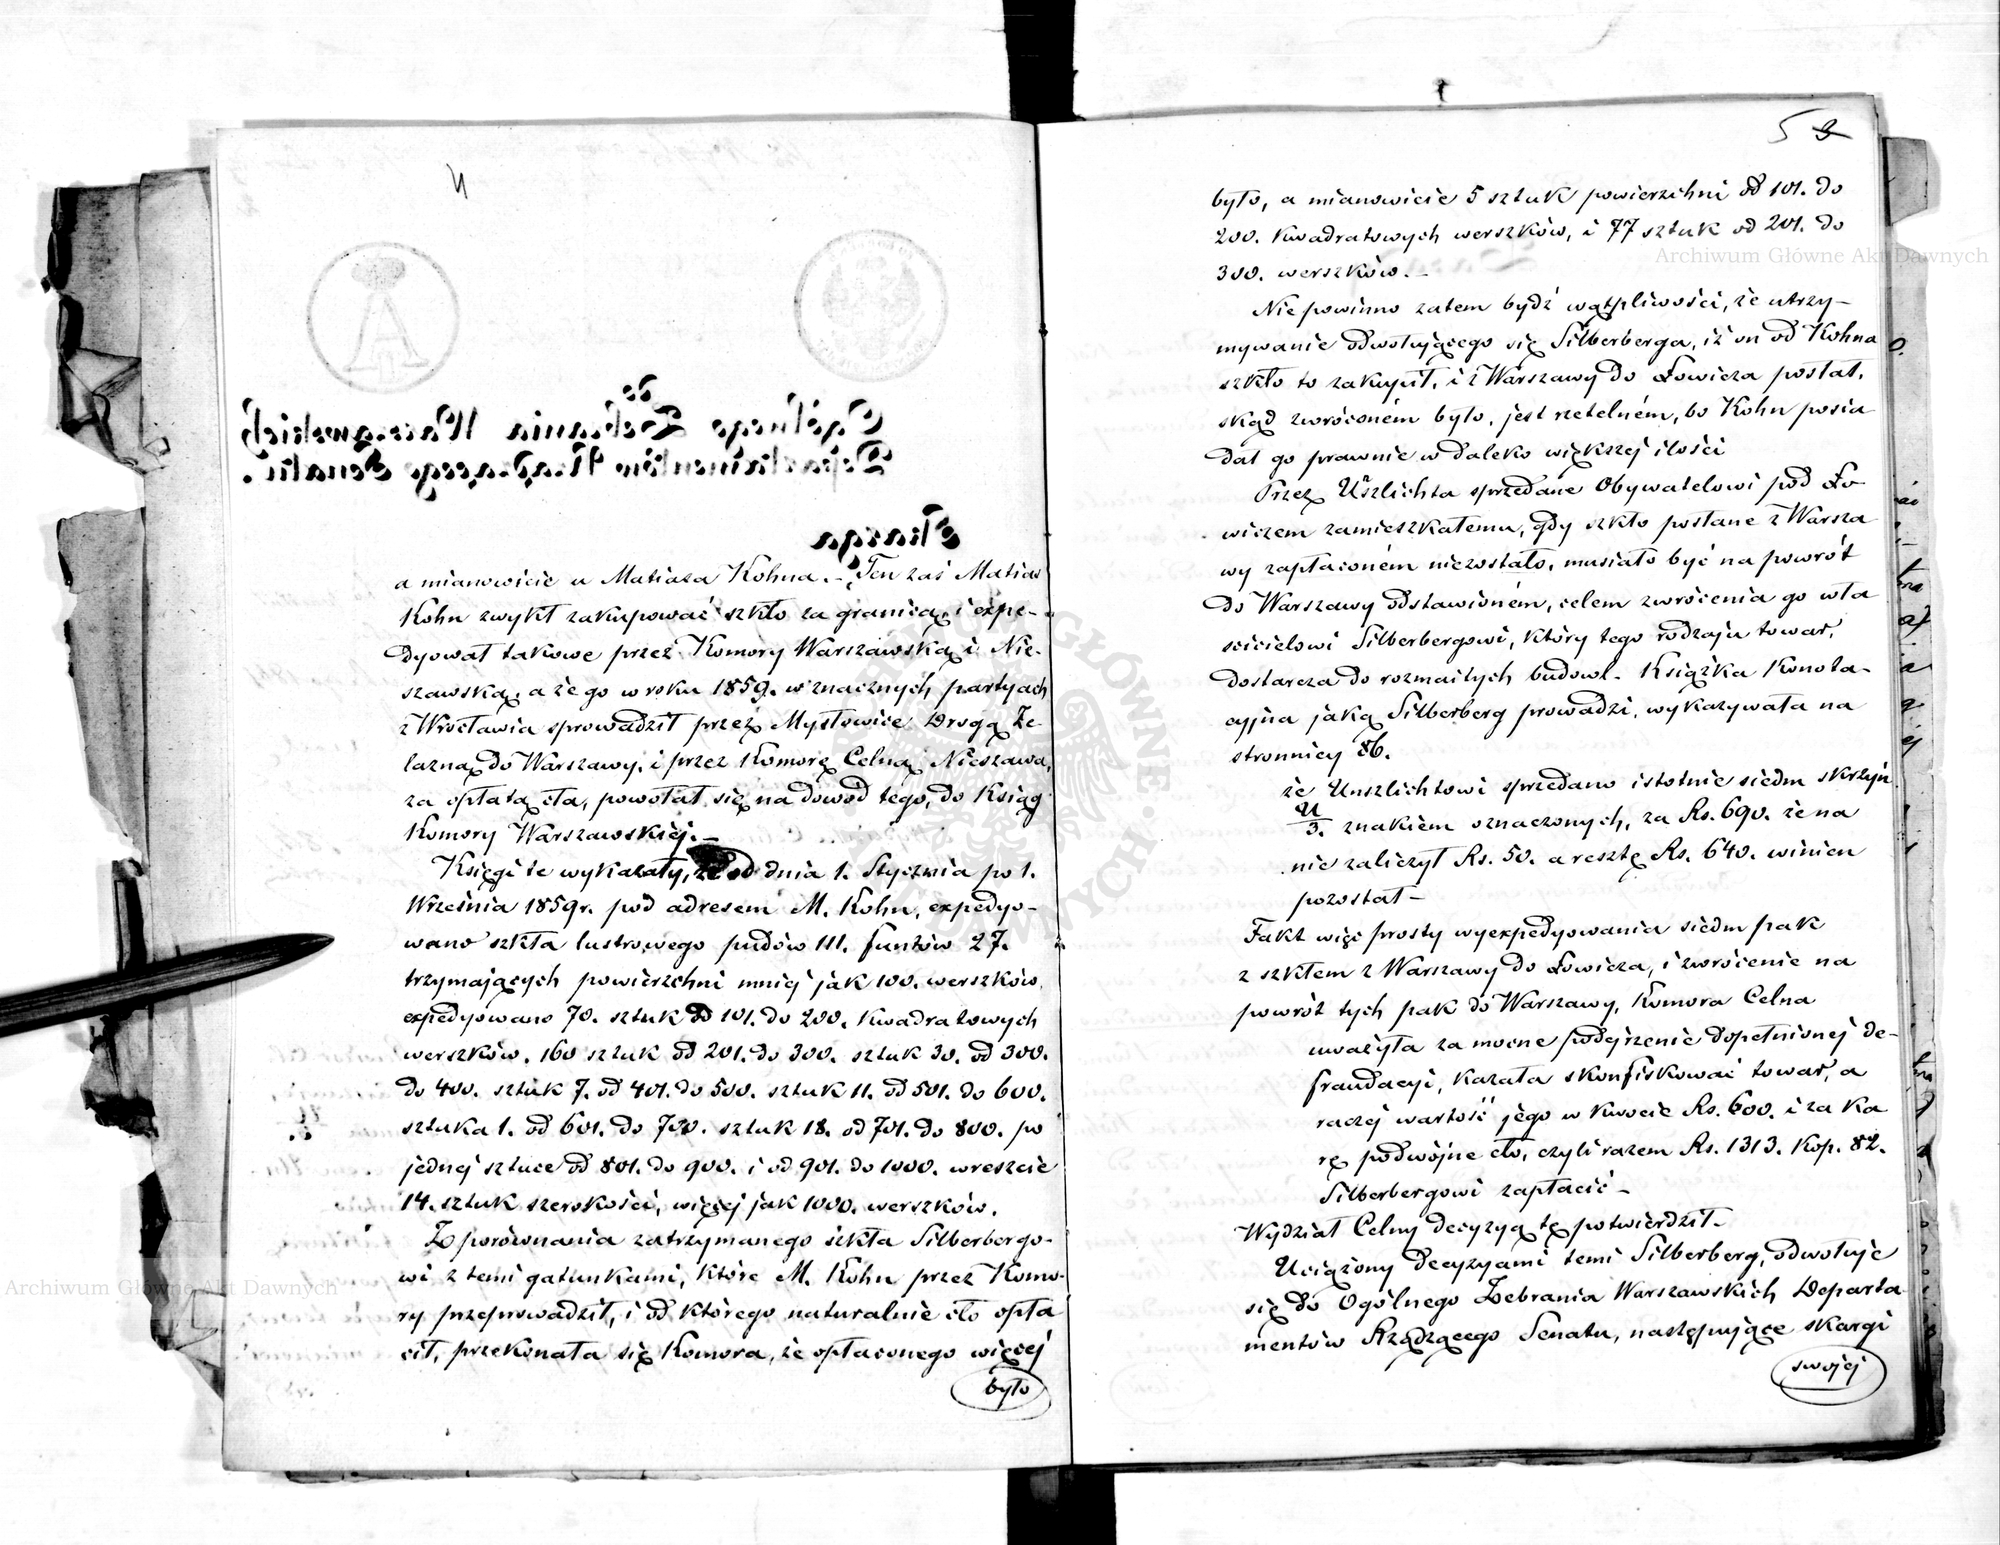 4
a mianowicie u Matiasa Kohna. – Ten zaś Matias
Kohn zwykł zakupować szkło za granicą, i expe-
dyował takowe przez Komory Warszawską i Nie-
szawską, a że go w roku 1859. w znacznych partyach
z Wrocławia sprowadził przez Mysłowice Drogą Że
lazną do Warszawy, i przez Komorę Celną Nieszawa,
za opłatą cła, powołał się na dowód tego, do Ksiąg
Komory Warszawskiej. –
Księgi te wykazały, że od dnia 1. Stycznia po 1.
Września 1859 r. pod adresem M. Kohn, expedyo-
wano szkła lustrowego pudów 111. funtów 27.
trzymających powierzchni mniej jak 100. werszków,
expedyowano 70. sztuk od 101. do 200. kwadratowych
werszków, 160 sztuk od 201. do 300. sztuk 30. od 300.
do 400. sztuk 7. od 401. do 500. sztuk 11. od 501. do 600.
sztuka 1. od 601. do 700. sztuk 18. od 701. do 800. po
jednej sztuce od 801. do 900. i od 901. do 1000. wreszcie
14. sztuk szerokości, więcej jak 1000. werszków.
Z porównania zatrzymanego szkła Silberbergo-
wi z temi gatunkami, które M. Kohn przez Komo-
ry przeprowadził, i od którego naturalnie cło opła
cił, przekonała się Komora, że opłaconego więcej
było
5
było, a mianowicie 5 sztuk powierzchni od 101. do
200. kwadratowych werszków, i 77 sztuk od 201. do
300. werszków. –
Nie powinno zatem bydź wątpliwości, że utrzy-
mywanie odwołującego się Silberberga, iż on od Kohna
szkło to zakupił, i z Warszawy do Łowicza posłał,
skąd zwróconém było, jest rzetelném, bo Kohn posia
dał go prawnie w daleko większej ilości
Przez Uszlichta sprzedane Obywatelowi pod Ło-
wiczem zamieszkałemu, gdy szkło posłane z Warsza
wy zapłaconém niezostało, musiało być na powrót
do Warszawy odstawioném, celem zwrócenia go wła
ścicielowi Silberbergowi, który tego rodzaju towar,
dostarcza do rozmaitych budowl. Książka Konota-
cyjna jaką Silberberg prowadzi, wykazywała na
stronnicy 86.
że Unszlichtowi sprzedano istotnie siedm skrzyń
U/3. znakiem oznaczonych, za Rs. 690. że na
nie zaliczył Rs. 50. a resztę Rs. 640. winien
pozostał –
Fakt więc prosty wyexpedyowania siedm pak
z szkłem z Warszawy do Łowicza, i zwrócenie na
powrót tych pak do Warszawy, Komora Celna
uważyła za mocne podejrzenie dopełnionej de-
fraudacyi, kazała skonfiskować towar, a
raczej wartość jego w kwocie Rs. 600. i za ka
rę podwójne cło, czyli razem Rs. 1313. Kop. 82.
Silberbergowi zapłacić –
Wydział Celny decyzyą tę potwierdził –
Uciążony decyzyami temi Silberberg, odwołuje
się do Ogólnego Zebrania Warszawskich Departa
mentów Rządzącego Senatu, następujące skargi
swojej
Archiwum Główne Akt Dawnych
Archiwum Główne Akt Dawnych